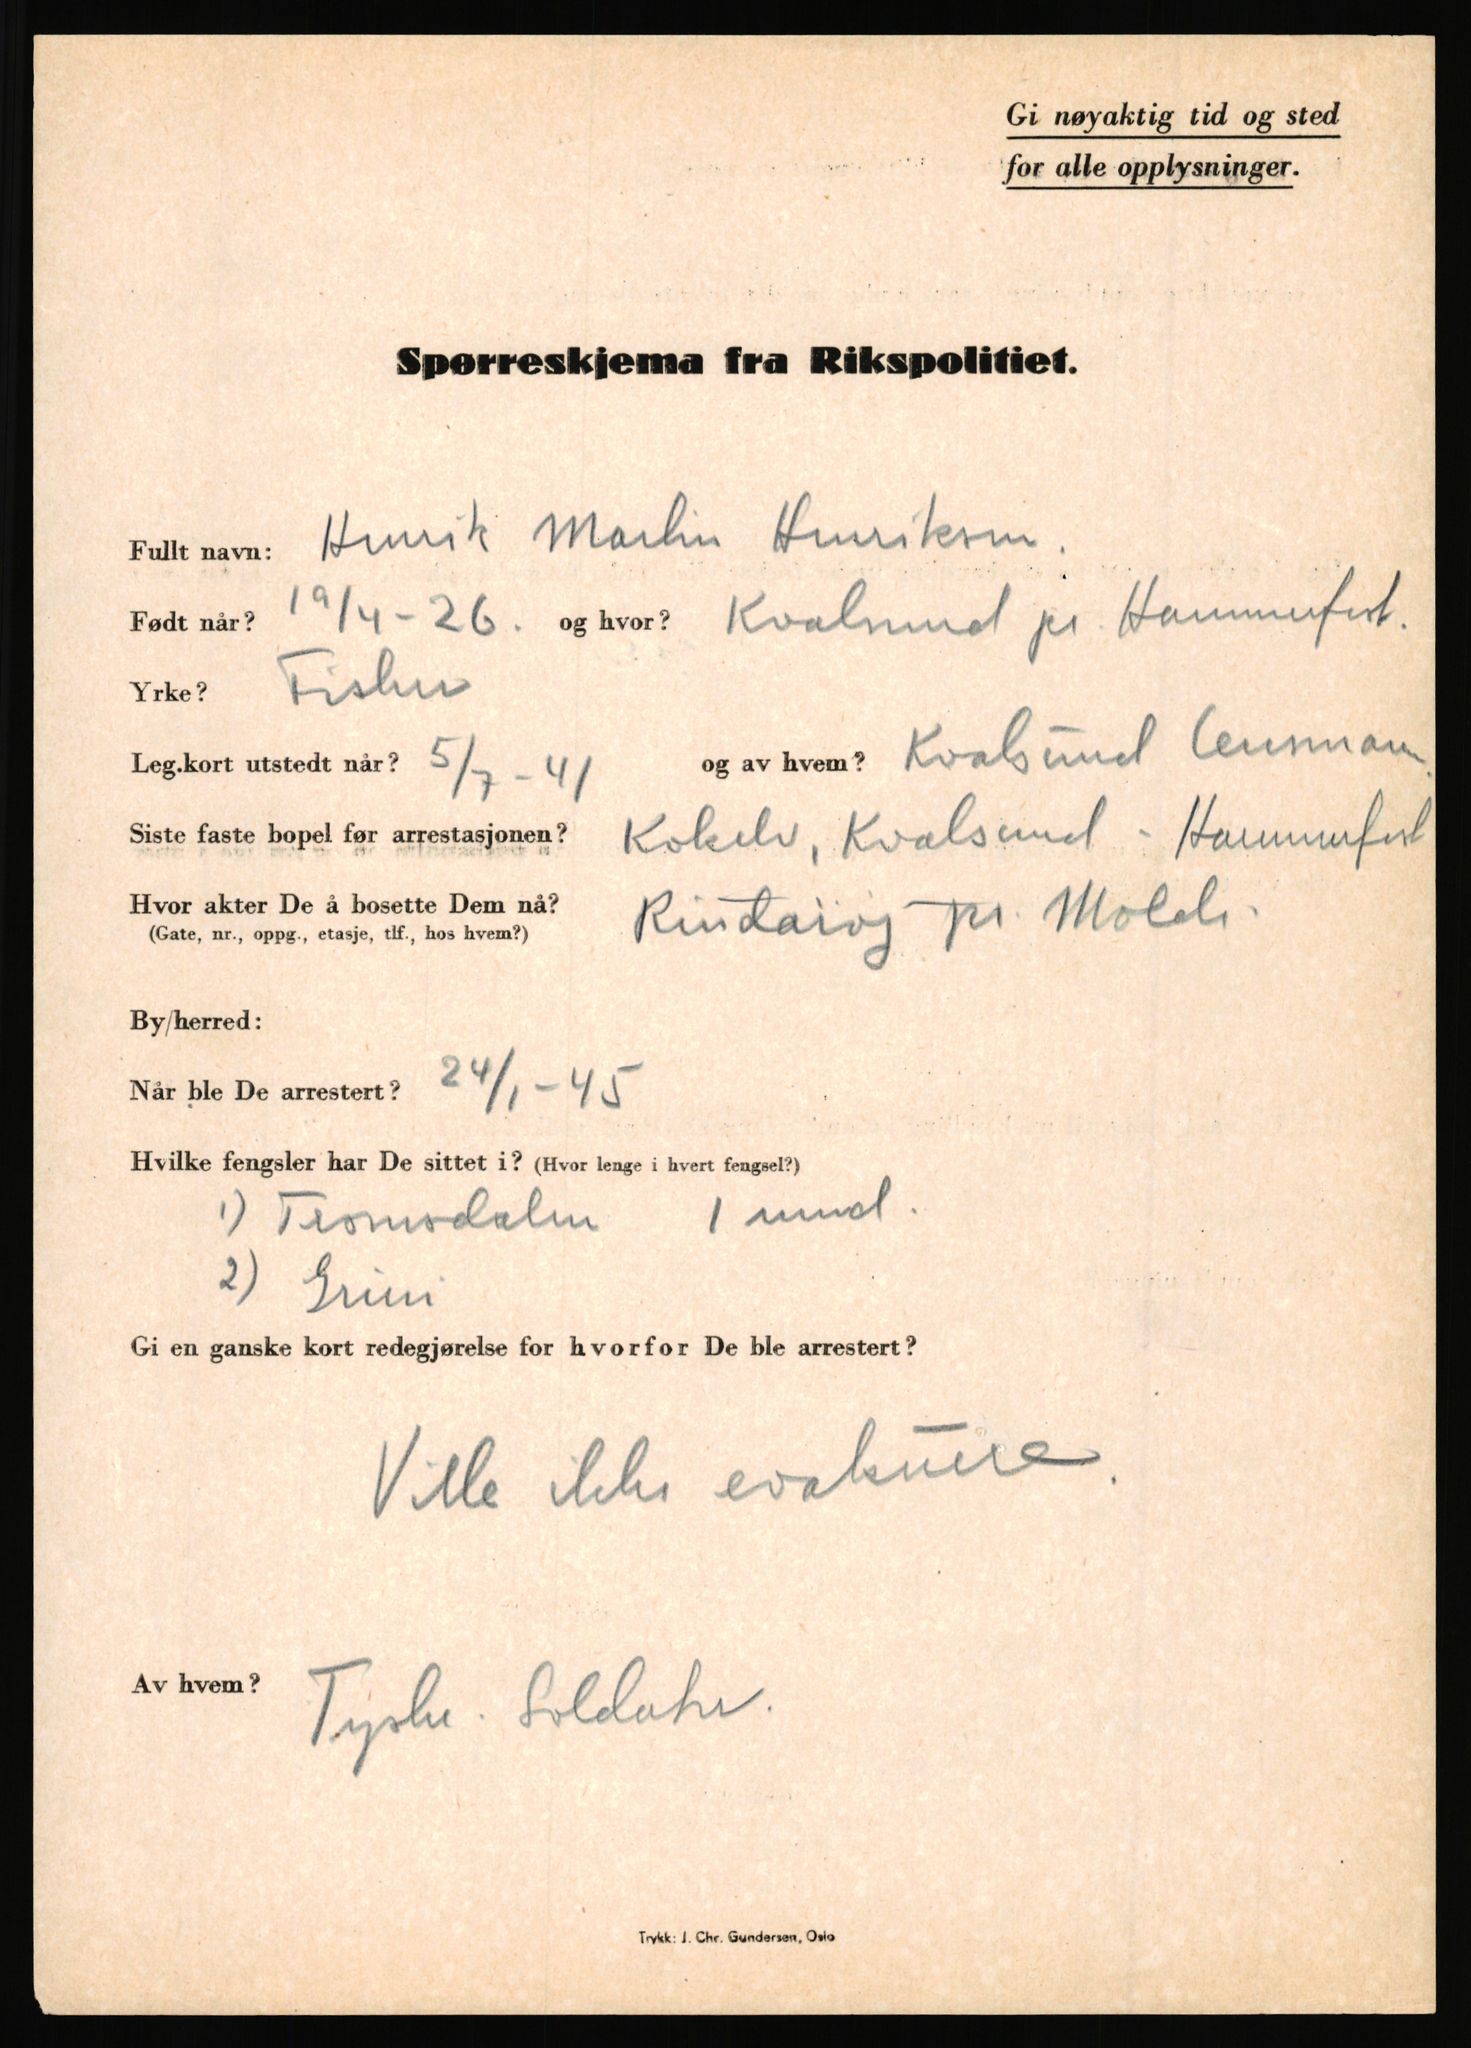 Gi nøyaktig tid og sted
for alle opplysninger.
Spørreskjema fra Rikspolitiet.
Fullt navn: Henrik Martin Henriksen.
Født når? 19/4-26. og hvor? Kvalsund pr. Hammerfest.
Yrke? Fisker
Leg.kort utstedt når? 5/7-41 og av hvem? Kvalsund Lensmann.
Siste faste bopel før arrestasjonen? Kokelv, Kvalsund - Hammerfest
Hvor akter De å bosette Dem nå? pr. Molde.
(Gate, nr., oppg., etasje, tlf., hos hvem?)
By/herred:
Når ble De arrestert? 24/1-45
Hvilke fengsler har De sittet i? (Hvor lenge i hvert fengsel?)
1) Tromsdalen 1 mnd.
2) Grini
Gi en ganske kort redegjørelse for hvorfor De ble arrestert?
Ville ikke evakuere.
Av hvem? Tyske. Soldater.
Trykk: J. Chr. Gundersen, Oslo